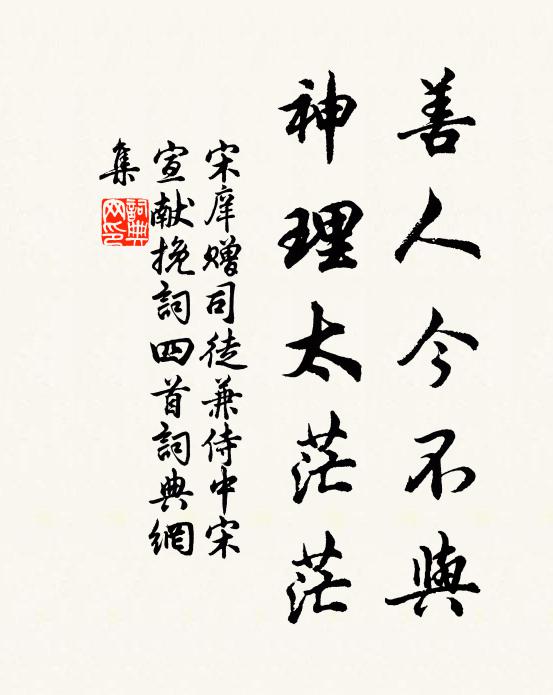 善人今不與
神理太茫茫
宋庠贈司徒兼侍中宋
宣献挽詞四首詞典網
集
詞典
网印